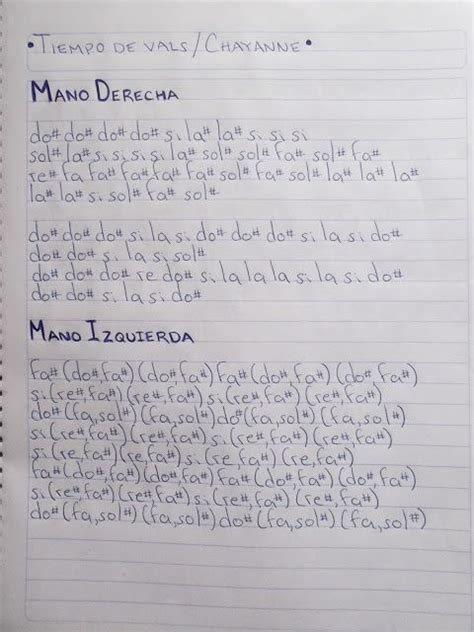 •TIEMPO DE VALS/CHAYANNE•
MANO DERECHA
do# do# do# do# si la# la# si si si
sol# la# si si si si la# sol# sol# fa# sol# fa#
re# fa fa# fa# fa# fa# sol# fa# sol# la# la# la#
la# la# si sol# fa# sol#
do# do# do# si la si do# do# do# si la si do#
do# do# si la si sol#
do# do# do# re do# si la la la si la si do#
do# do# si la si do#
MANO IZQUIERDA
fa# (do#,fa#) (do#fa#) fa# (do#,fa#) (do#,fa#)
si (re#,fa#) (re#fa#) si (re#,fa#) (re#,fa#)
do# (fa,sol#) (fa,sol#) do# (fa,sol#) (fa,sol#)
si (re#,fa#) (re#,fa#) si (re#,fa#) (re#,fa#)
si (re,fa#) (re,fa#) si (re,fa#) (re,fa#)
fa# (do#,fa#) (do#,fa#) fa# (do#,fa#) (do#,fa#)
si (re#,fa#) (re#fa#) si (re#,fa#) (re#,fa#)
do# (fa,sol#) (fa,sol#) do# (fa,sol#) (fa,sol#)